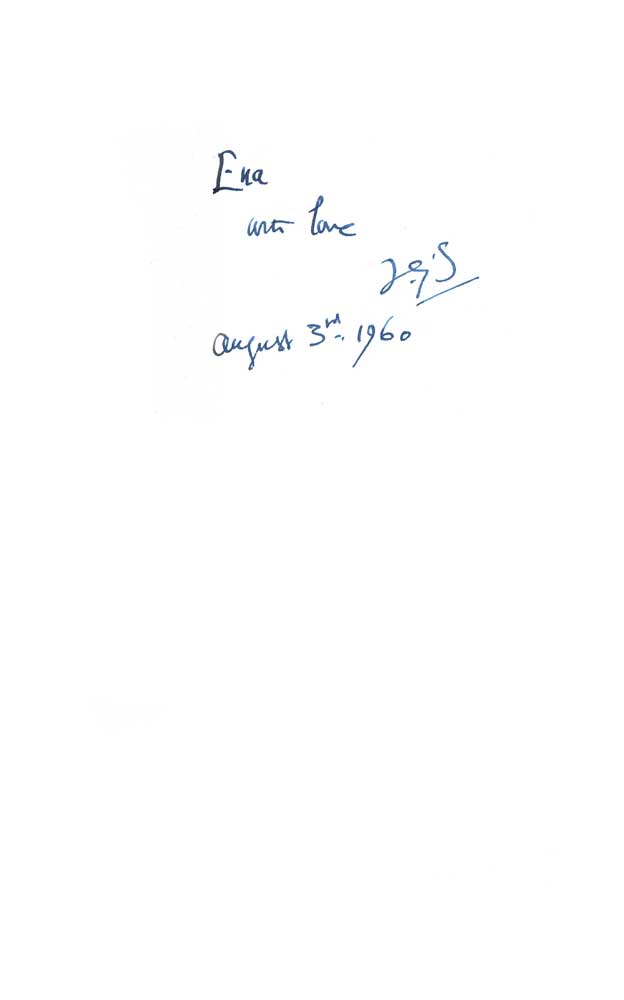 Ena
with love
August 3rd. 1960